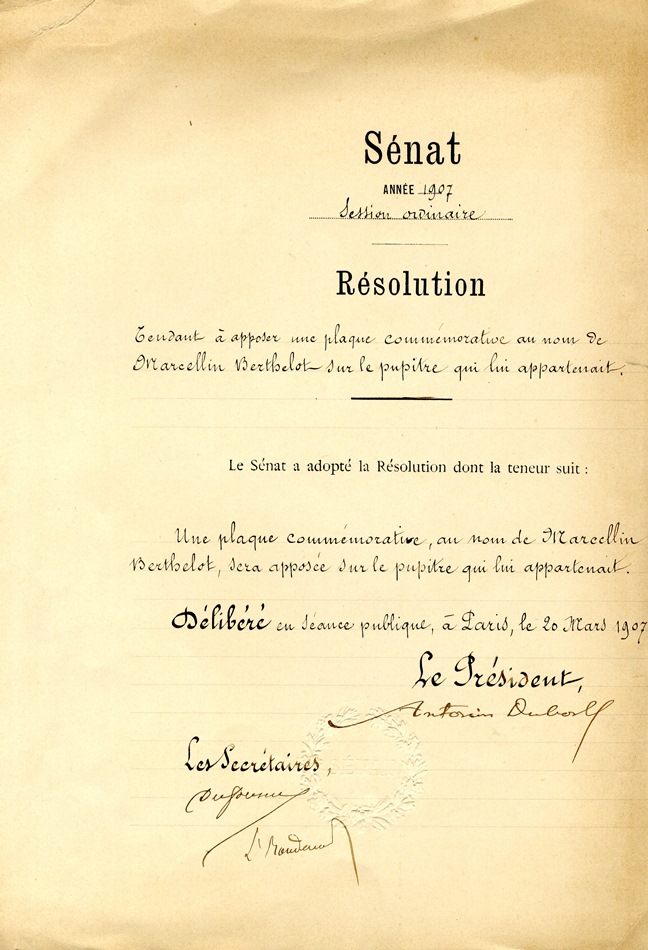 Sénat
ANNÉE 1907
Session ordinaire
Résolution
Tendant à apposer une plaque commémorative au nom de
Marcellin Berthelot sur le pupitre qui lui appartenait.
Le Sénat a adopté la Résolution dont la teneur suit :
Une plaque commémorative, au nom de Marcellin
Berthelot, sera apposée sur le pupitre qui lui appartenait.
Délibéré en séance publique, à Paris, le 20 Mars 1907
Le Président,
Antonin Dubost
Les Secrétaires,